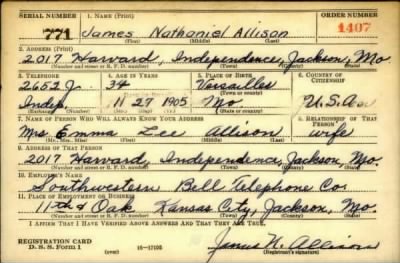 SERIAL NUMBER 1. NAME (Print) ORDER NUMBER
771 James Nathaniel Allison 1407
(First) (Middle) (Last)
2. ADDRESS (Print)
2017 Harvard, Independence, Jackson, Mo.
(Number and street or R. F. D. number) (Town) (County) (State)
3. TELEPHONE 4. AGE IN YEARS 5. PLACE OF BIRTH 6. COUNTRY OF CITIZENSHIP
2652J. 34 Versailles
Indep. 11 27 1905 Mo. U.S.A.
7. NAME OF PERSON WHO WILL ALWAYS KNOW YOUR ADDRESS 8. RELATIONSHIP OF THAT PERSON
Mrs Emma Lee Allison wife
(Mr., Mrs., Miss) (First) (Middle) (Last)
9. ADDRESS OF THAT PERSON
2017 Harvard, Independence, Jackson, Mo.
(Number and street or R. F. D. number) (Town) (County) (State)
10. EMPLOYER'S NAME
Southwestern Bell Telephone Co.
11. PLACE OF EMPLOYMENT OR BUSINESS
11th & Oak Kansas City, Jackson, Mo.
(Number and street or R. F. D. number) (Town) (County) (State)
I AFFIRM THAT I HAVE VERIFIED ABOVE ANSWERS AND THAT THEY ARE TRUE.
REGISTRATION CARD
D. S. S. FORM 1 16-17105 James N. Allison
(Registrant's signature)